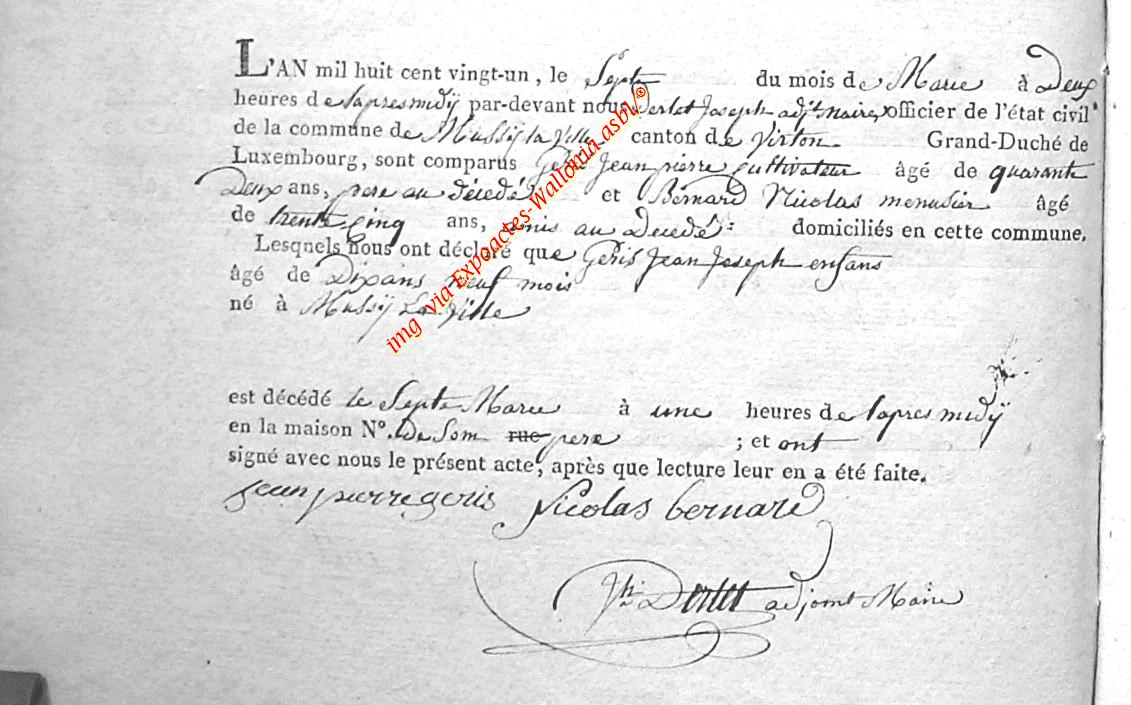 L'AN mil huit cent vingt-un, le Septe du mois de Marce à Deux
heures de lapres midÿ par-devant nous Derlet Joseph adjt. maire, officier de l'état civil
de la commune de Mussÿ la Ville canton de Virton Grand-Duché de
Luxembourg, sont comparus Geris Jean pierre cultivateur âgé de quarante
Deux ans, pere au décedé et Bernard Nicolas menusier âgé
de trente Cinq ans, amis au Decedé domiciliés en cette commune.
Lesquels nous ont déclaré que Geris Jean Joseph enfans
âgé de Dix ans neuf mois
né à Mussÿ La Ville
est décédé le Septe Marce à une heures de lapres midÿ
en la maison N°. de Som rue pere ; et ont
signé avec nous le présent acte, après que lecture leur en a été faite.
jean pierre geris Nicolas bernard
Jh Derlet adjoint Maire
img via Expoactes-Wallonia-asbl ©